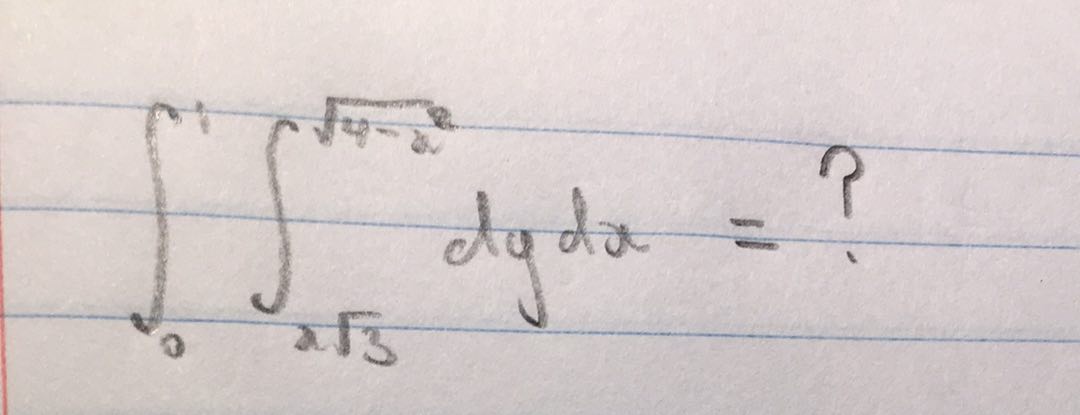 ∫₀¹ ∫_{x√3}^{√(4-x²)} dy dx = ?